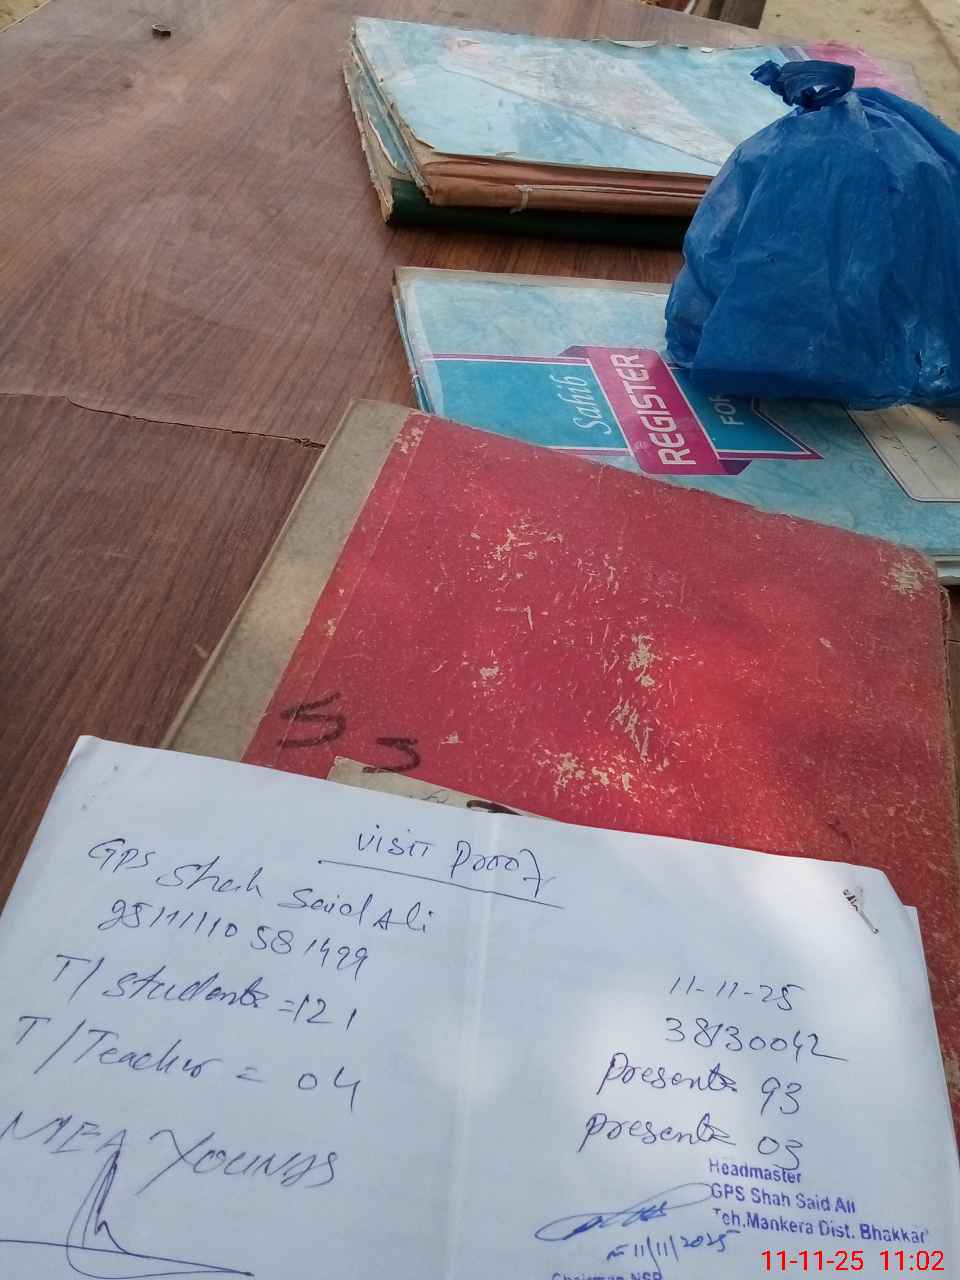 Sahib
REGISTER
FOR
VISIT Proof
GPS Shah Said Ali
T/Students = 121
T/Teacher = 04
MEA Younas
11-11-25
38130042
Presents 93
Presents 03
Headmaster
GPS Shah Said Ali
Teh.Mankera Dist. Bhakkar
11/11/2025
Chairman NSB
11-11-25 11:02